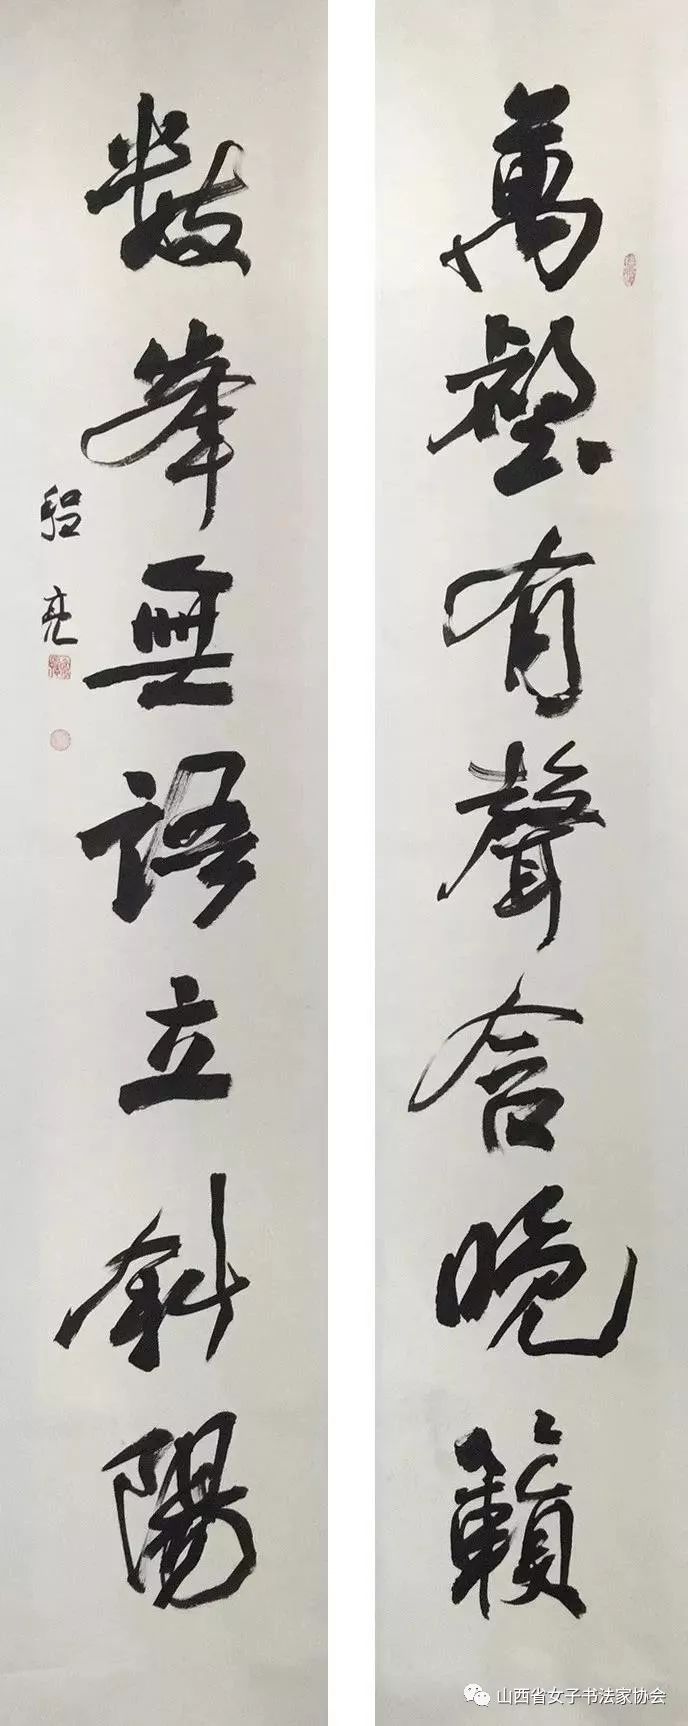 萬壑有聲含晚籟
數峯無語立斜陽
程亮
山西省女子书法家协会